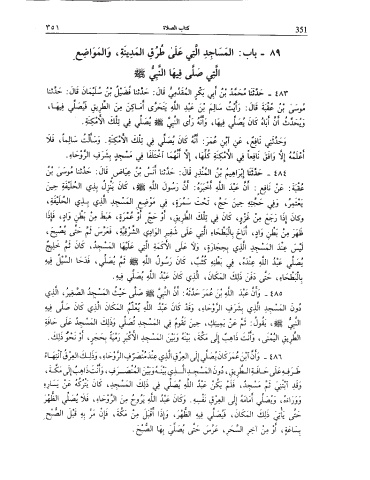 ٣٥١ كتاب الصلاة 351
٨٩ - باب: المَسَاجِدِ الَّتِي عَلَى طُرُقِ المَدِينَةِ، وَالمَوَاضِعِ
الَّتِي صَلَّى فِيهَا النَّبِيُّ ﷺ
٤٨٣ - حَدَّثَنَا مُحَمَّدُ بْنُ أَبِي بَكْرٍ المُقَدَّمِيُّ قَالَ: حَدَّثَنَا فُضَيْلُ بْنُ سُلَيْمَانَ قَالَ: حَدَّثَنَا
مُوسَى بْنُ عُقْبَةَ قَالَ: رَأَيْتُ سَالِمَ بْنَ عَبْدِ اللَّهِ يَتَحَرَّى أَمَاكِنَ مِنَ الطَّرِيقِ فَيُصَلِّي فِيهَا،
وَيُحَدِّثُ أَنَّ أَبَاهُ كَانَ يُصَلِّي فِيهَا، وَأَنَّهُ رَأَى النَّبِيَّ ﷺ يُصَلِّي فِي تِلْكَ الأَمْكِنَةِ.
وَحَدَّثَنِي نَافِعٌ، عَنِ ابْنِ عُمَرَ: أَنَّهُ كَانَ يُصَلِّي فِي تِلْكَ الأَمْكِنَةِ. وَسَأَلْتُ سَالِماً، فَلَا
أَعْلَمُهُ إِلَّا وَافَقَ نَافِعاً فِي الأَمْكِنَةِ كُلِّهَا، إِلَّا أَنَّهُمَا اخْتَلَفَا فِي مَسْجِدٍ بِشَرَفِ الرَّوْحَاءِ.
٤٨٤ - حَدَّثَنَا إِبْرَاهِيمُ بْنُ المُنْذِرِ قَالَ: حَدَّثَنَا أَنَسُ بْنُ عِيَاضٍ قَالَ: حَدَّثَنَا مُوسَى بْنُ
عُقْبَةَ: عَنْ نَافِعٍ: أَنَّ عَبْدَ اللَّهِ أَخْبَرَهُ: أَنَّ رَسُولَ اللَّهِ ﷺ، كَانَ يَنْزِلُ بِذِي الحُلَيْفَةِ حِينَ
يَعْتَمِرُ، وَفِي حَجَّتِهِ حِينَ حَجَّ، تَحْتَ سَمُرَةٍ، فِي مَوْضِعِ المَسْجِدِ الَّذِي بِذِي الحُلَيْفَةِ،
وَكَانَ إِذَا رَجَعَ مِنْ غَزْوٍ، كَانَ فِي تِلْكَ الطَّرِيقِ، أَوْ حَجٍّ أَوْ عُمْرَةٍ، هَبَطَ مِنْ بَطْنِ وَادٍ، فَإِذَا
ظَهَرَ مِنْ بَطْنِ وَادٍ، أَنَاخَ بِالبَطْحَاءِ الَّتِي عَلَى شَفِيرِ الوَادِي الشَّرْقِيَّةِ، فَعَرَّسَ ثَمَّ حَتَّى يُصْبِحَ،
لَيْسَ عِنْدَ المَسْجِدِ الَّذِي بِحِجَارَةٍ، وَلَا عَلَى الأَكَمَةِ الَّتِي عَلَيْهَا المَسْجِدُ، كَانَ ثَمَّ خَلِيجٌ
يُصَلِّي عَبْدُ اللَّهِ عِنْدَهُ، فِي بَطْنِهِ كُثُبٌ، كَانَ رَسُولُ اللَّهِ ﷺ ثَمَّ يُصَلِّي، فَدَحَا السَّيْلُ فِيهِ
بِالبَطْحَاءِ، حَتَّى دَفَنَ ذَلِكَ المَكَانَ، الَّذِي كَانَ عَبْدُ اللَّهِ يُصَلِّي فِيهِ.
٤٨٥ - وَأَنَّ عَبْدَ اللَّهِ بْنَ عُمَرَ حَدَّثَهُ: أَنَّ النَّبِيَّ ﷺ صَلَّى حَيْثُ المَسْجِدُ الصَّغِيرُ، الَّذِي
دُونَ المَسْجِدِ الَّذِي بِشَرَفِ الرَّوْحَاءِ، وَقَدْ كَانَ عَبْدُ اللَّهِ يَعْلَمُ المَكَانَ الَّذِي كَانَ صَلَّى فِيهِ
النَّبِيُّ ﷺ، يَقُولُ: ثَمَّ عَنْ يَمِينِكَ، حِينَ تَقُومُ فِي المَسْجِدِ تُصَلِّي، وَذَلِكَ المَسْجِدُ عَلَى حَافَةِ
الطَّرِيقِ اليُمْنَى، وَأَنْتَ ذَاهِبٌ إِلَى مَكَّةَ، بَيْنَهُ وَبَيْنَ المَسْجِدِ الأَكْبَرِ رَمْيَةٌ بِحَجَرٍ، أَوْ نَحْوُ ذَلِكَ.
٤٨٦ - وَأَنَّ ابْنَ عُمَرَ كَانَ يُصَلِّي إِلَى العِرْقِ الَّذِي عِنْدَ مُنْصَرَفِ الرَّوْحَاءِ، وَذَلِكَ العِرْقُ انْتِهَاءُ
طَرَفِهِ عَلَى حَافَةِ الطَّرِيقِ، دُونَ المَسْجِدِ الَّذِي بَيْنَهُ وَبَيْنَ المُنْصَرَفِ، وَأَنْتَ ذَاهِبٌ إِلَى مَكَّةَ،
وَقَدِ ابْتُنِيَ ثَمَّ مَسْجِدٌ، فَلَمْ يَكُنْ عَبْدُ اللَّهِ يُصَلِّي فِي ذَلِكَ المَسْجِدِ، كَانَ يَتْرُكُهُ عَنْ يَسَارِهِ
وَوَرَاءَهُ، وَيُصَلِّي أَمَامَهُ إِلَى العِرْقِ نَفْسِهِ. وَكَانَ عَبْدُ اللَّهِ يَرُوحُ مِنَ الرَّوْحَاءِ، فَلَا يُصَلِّي الظُّهْرَ
حَتَّى يَأْتِيَ ذَلِكَ المَكَانَ، فَيُصَلِّي فِيهِ الظُّهْرَ، وَإِذَا أَقْبَلَ مِنْ مَكَّةَ، فَإِنْ مَرَّ بِهِ قَبْلَ الصُّبْحِ
بِسَاعَةٍ، أَوْ مِنْ آخِرِ السَّحَرِ، عَرَّسَ حَتَّى يُصَلِّيَ بِهَا الصُّبْحَ.